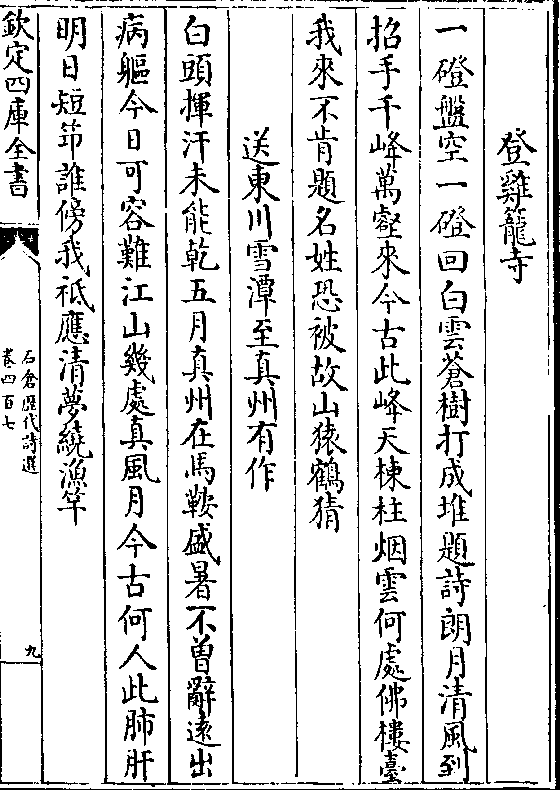 登雞籠寺
一磴盤空一磴回白雲蒼樹打成堆題詩朗月清風到
招手千峰萬壑來今古此峰天棟柱烟雲何處佛樓臺
我來不肯題名姓恐被故山猿鶴猜
送東川雪潭至真州有作
白頭揮汗未能乾五月真州在馬鞍盛暑不曾辭遠出
病軀今日可容難江山幾處真風月今古何人此肺肝
明日短笻誰傍我祗應清夢繞漁竿
欽定四庫全書
石倉歴代詩選
卷四百七
九